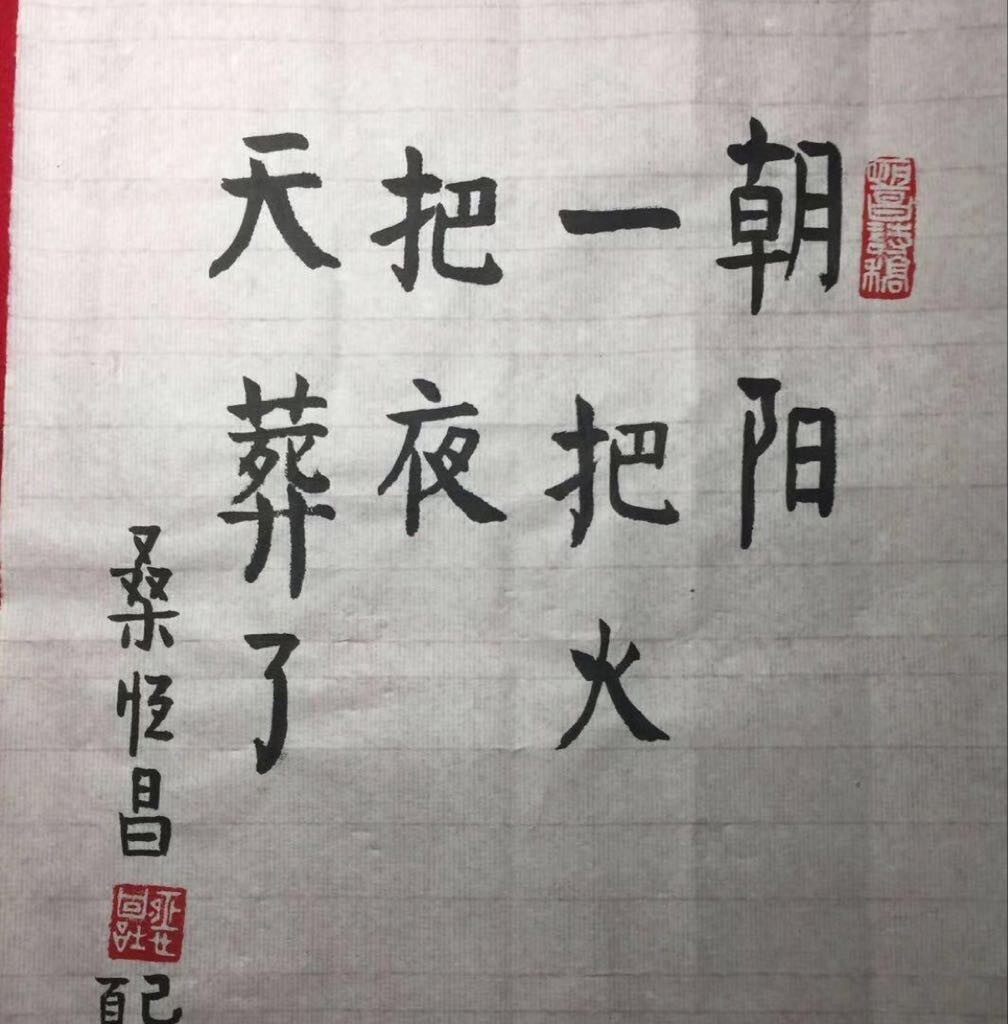 朝阳
一把火
把夜
天葬了
桑恒昌
己
百